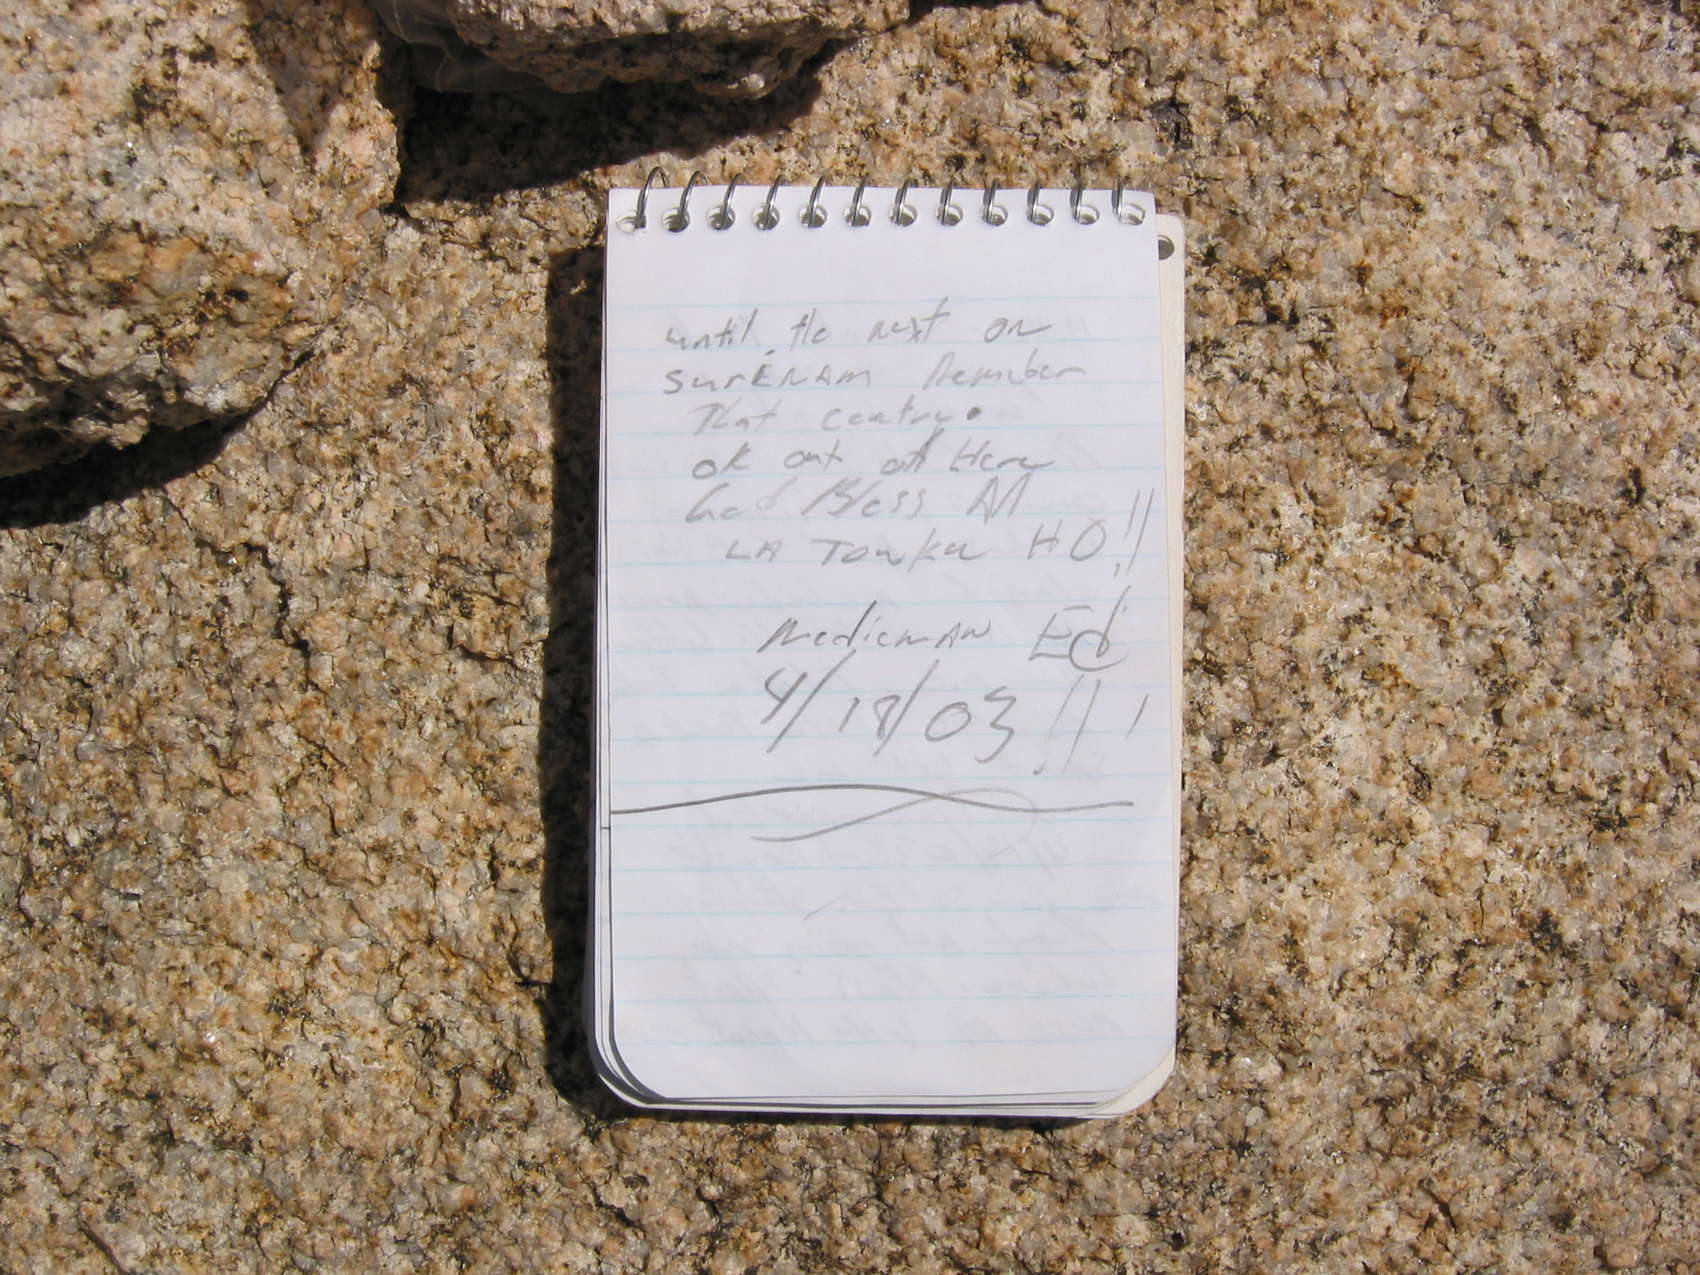 until the next on
SurENAM Remember
That centry.
ok out of Here
God Bless All
LA TonKa HO!!
MedicmAN Ed!
4/18/03!!!